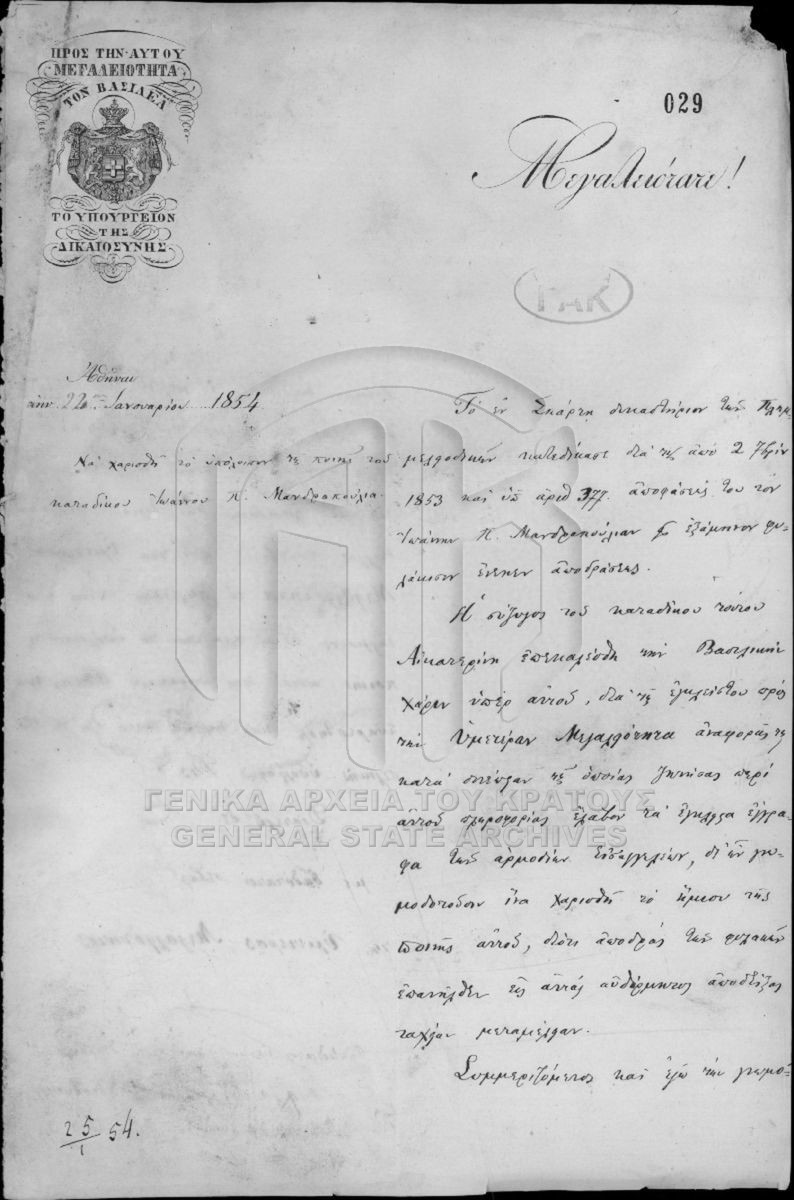 ΠΡΟΣ ΤΗΝ ΑΥΤΟΥ
ΜΕΓΑΛΕΙΟΤΗΤΑ
ΤΟΝ ΒΑΣΙΛΕΑ
ΤΟ ΥΠΟΥΡΓΕΙΟΝ
ΤΗΣ
ΔΙΚΑΙΟΣΥΝΗΣ
029
Μεγαλειότατε!
Ἀθῆναι
τὴν 22 Ἰανουαρίου 1854.
Νὰ χαρισθῇ τὸ ὑπόλοιπον τῆς ποινῆς τοῦ
καταδίκου Ἰωάννου Π. Μανδραπούλια.
Τὸ ἐν Σπάρτῃ δικαστήριον τῶν Πλημ-
μελειοδικῶν κατεδίκασε διὰ τῆς ἀπὸ 2 7βρίου
1853 καὶ ὑπ ἀριθ 377. ἀποφάσεώς του τὸν
Ἰωάννην Π. Μανδραπούλιαν εἰς ἑξάμηνον φυ-
λάκισιν ἕνεκεν ἀποδράσεως.
Ἡ σύζυγος τοῦ καταδίκου τούτου
Αἰκατερίνη ἐπεκαλέσθη τὴν Βασιλικὴν
χάριν ὑπὲρ αὐτοῦ, διὰ τῆς ἐγκλείστου πρὸς
τὴν Ὑμετέραν Μεγαλειότητα ἀναφορᾶς της
κατὰ συνέπειαν τῆς ὁποίας ζητήσας περὶ
αὐτοῦ πληροφορίας ἔλαβον τὰ ἔγκλειστα ἔγγρα-
φα τῶν ἁρμοδίων Εἰσαγγελιῶν, δι' ὧν γνω-
μοδοτοῦσιν ἵνα χαρισθῇ τὸ ἥμισυ τῆς
ποινῆς αὐτοῦ, διότι ἀποδρὰς τῶν φυλακῶν
ἐπανῆλθεν εἰς αὐτὰς αὐθόρμητος ἀποδείξας
ταχεῖαν μεταμέλειαν.
Συμμεριζόμενος καὶ ἐγὼ τὴν γνωμο-
25/1 54.
ΓΕΝΙΚΑ ΑΡΧΕΙΑ ΤΟΥ ΚΡΑΤΟΥΣ
GENERAL STATE ARCHIVES